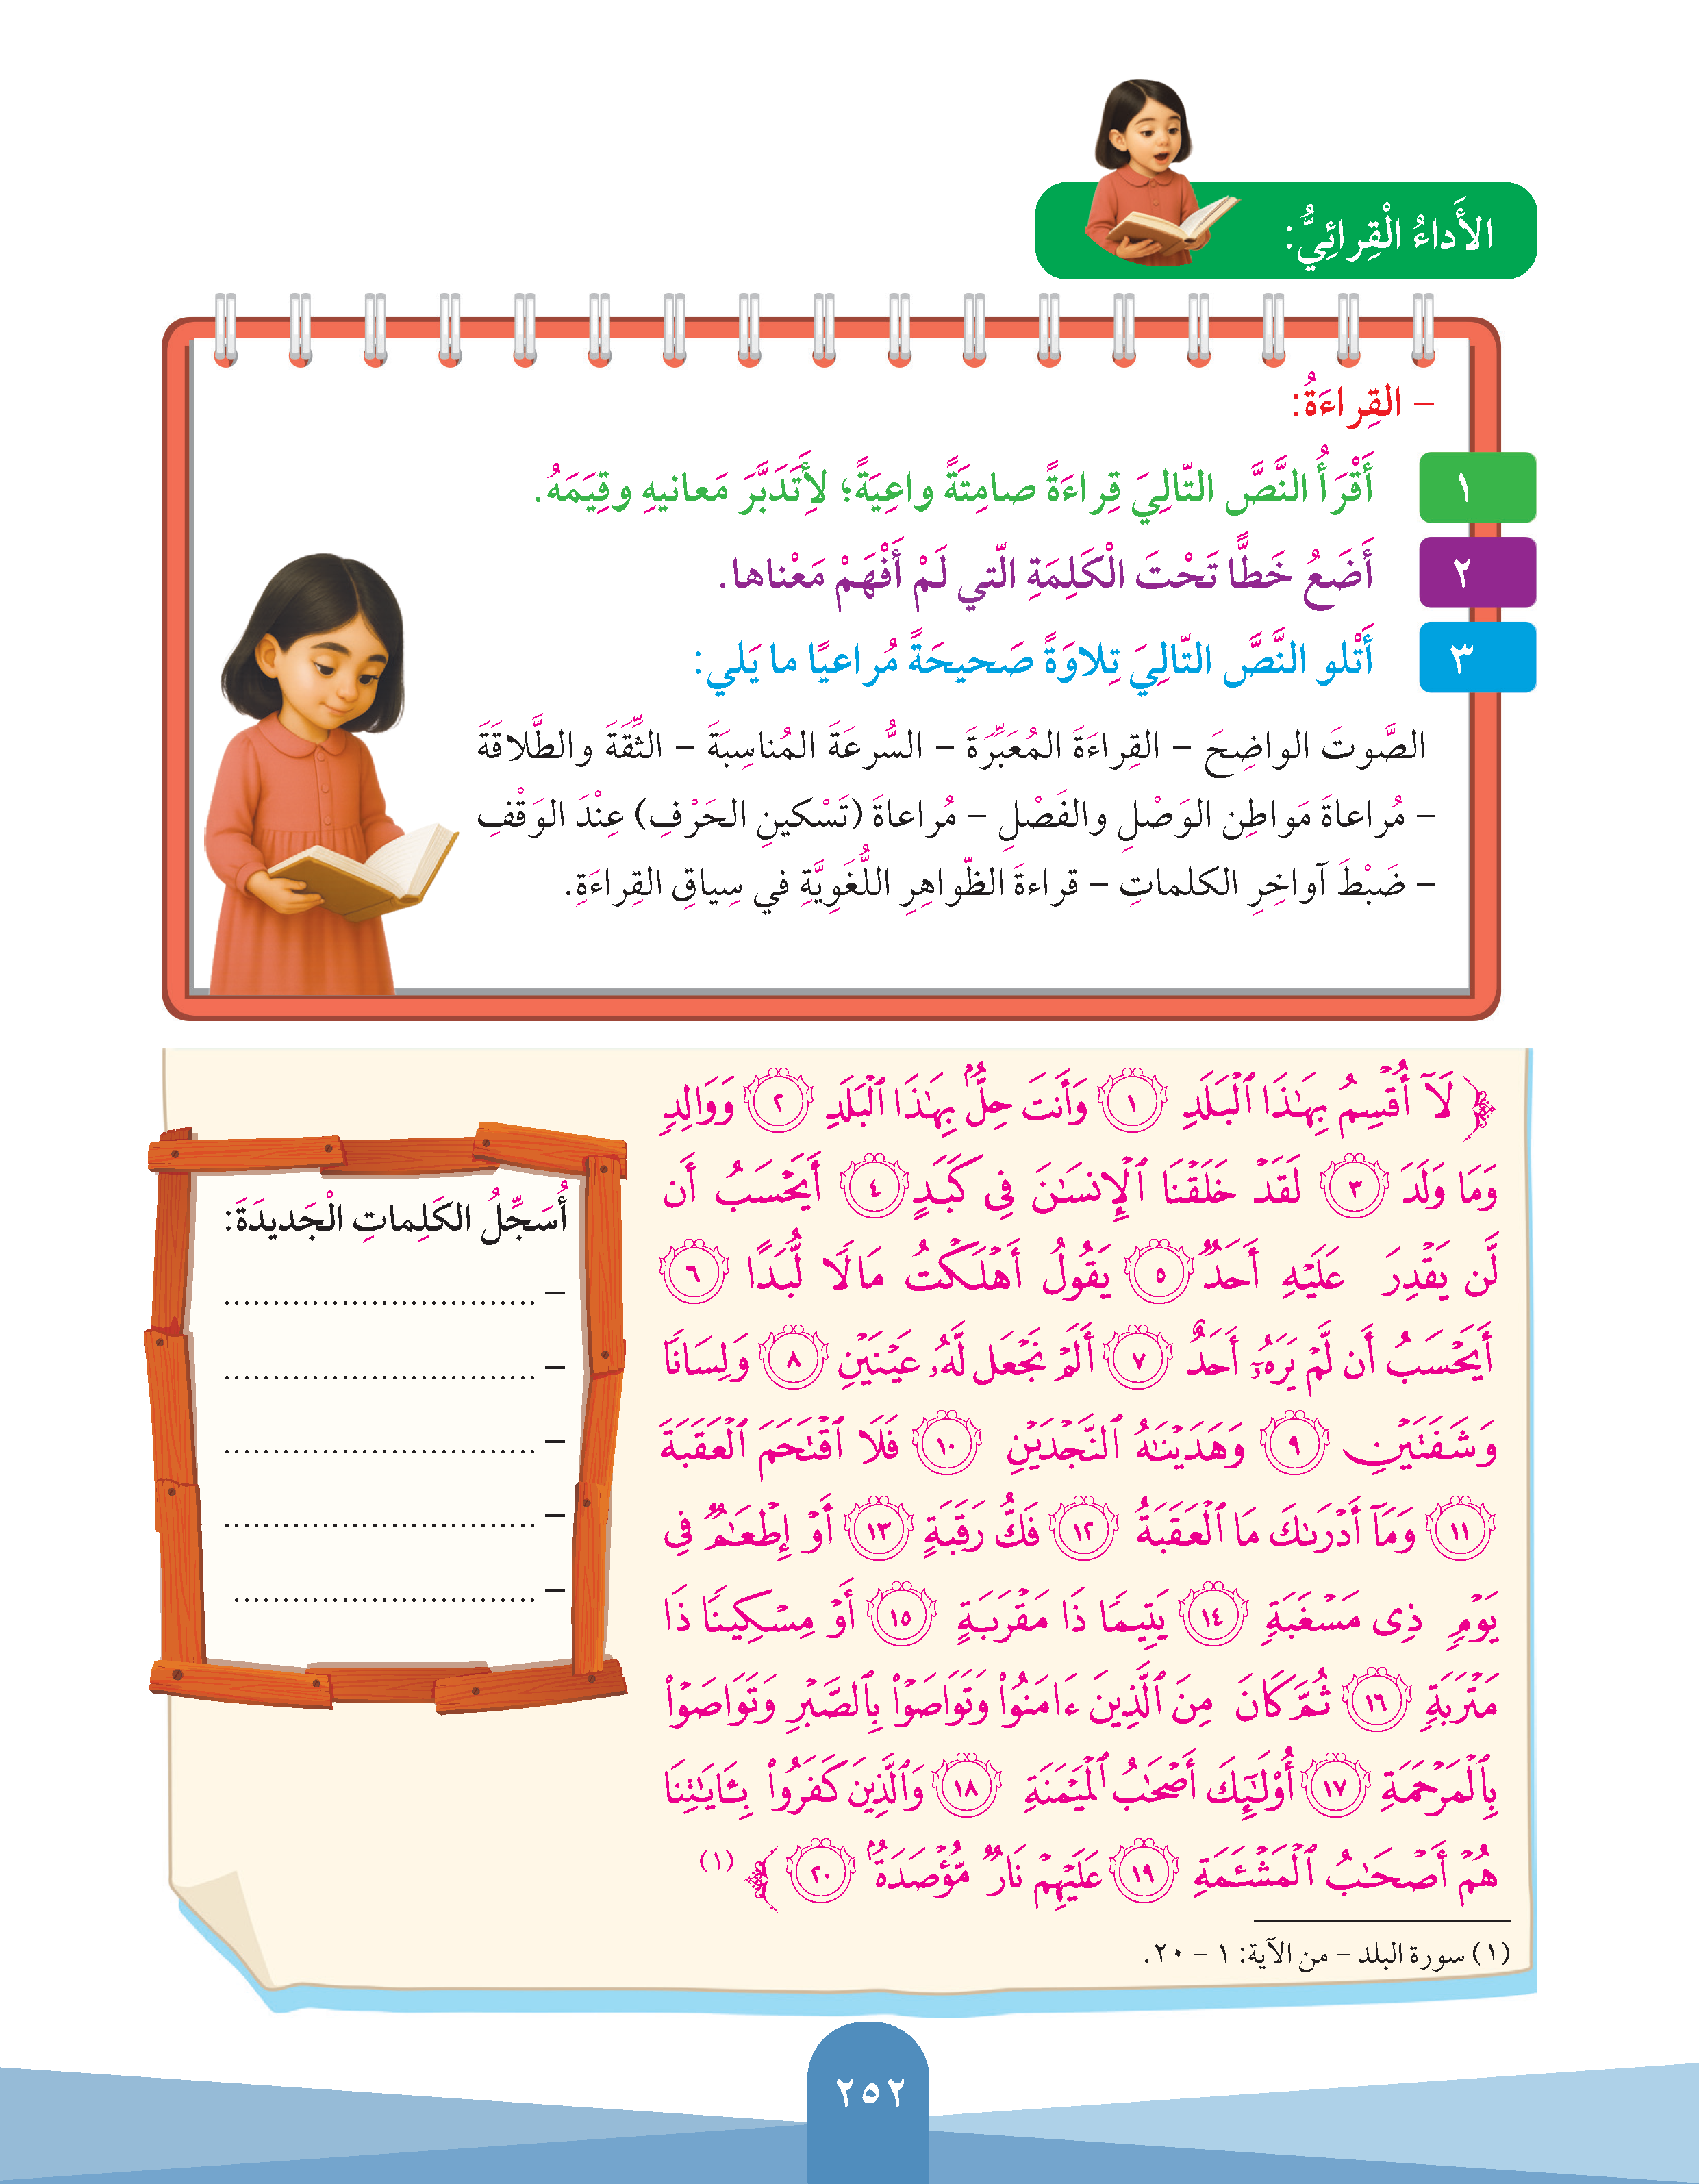 الأَداءُ الْقِرائِيُّ:
– القِراءَةُ:
١ أَقْرَأُ النَّصَّ التّالِيَ قِراءَةً صامِتَةً واعِيَةً؛ لِأَتَدَبَّرَ مَعانيهِ وقِيَمَهُ.
٢ أَضَعُ خَطًّا تَحْتَ الْكَلِمَةِ الّتي لَمْ أَفْهَمْ مَعْناها.
٣ أَتْلو النَّصَّ التّالِيَ تِلاوَةً صَحيحَةً مُراعيًا ما يَلي:
الصَّوتَ الواضِحَ – القِراءَةَ المُعَبِّرَةَ – السُّرعَةَ المُناسِبَةَ – الثِّقَةَ والطَّلاقَةَ
– مُراعاةَ مَواطِن الوَصْلِ والفَصْلِ – مُراعاةَ (تَسْكينِ الحَرْفِ) عِنْدَ الوَقْفِ
– ضَبْطَ آواخِرِ الكلماتِ – قراءةَ الظّواهِرِ اللُّغَوِيَّةِ في سِياقِ القِراءَةِ.
﴿ لَآ أُقۡسِمُ بِهَٰذَا ٱلۡبَلَدِ ١ وَأَنتَ حِلُّۢ بِهَٰذَا ٱلۡبَلَدِ ٢ وَوَالِدٖ
وَمَا وَلَدَ ٣ لَقَدۡ خَلَقۡنَا ٱلۡإِنسَٰنَ فِي كَبَدٍ ٤ أَيَحۡسَبُ أَن
لَّن يَقۡدِرَ عَلَيۡهِ أَحَدٞ ٥ يَقُولُ أَهۡلَكۡتُ مَالٗا لُّبَدًا ٦
أَيَحۡسَبُ أَن لَّمۡ يَرَهُۥٓ أَحَدٌ ٧ أَلَمۡ نَجۡعَل لَّهُۥ عَيۡنَيۡنِ ٨ وَلِسَانٗا
وَشَفَتَيۡنِ ٩ وَهَدَيۡنَٰهُ ٱلنَّجۡدَيۡنِ ١٠ فَلَا ٱقۡتَحَمَ ٱلۡعَقَبَةَ
١١ وَمَآ أَدۡرَىٰكَ مَا ٱلۡعَقَبَةُ ١٢ فَكُّ رَقَبَةٍ ١٣ أَوۡ إِطۡعَٰمٞ فِي
يَوۡمٖ ذِي مَسۡغَبَةٖ ١٤ يَتِيمٗا ذَا مَقۡرَبَةٍ ١٥ أَوۡ مِسۡكِينٗا ذَا
مَتۡرَبَةٖ ١٦ ثُمَّ كَانَ مِنَ ٱلَّذِينَ ءَامَنُواْ وَتَوَاصَوۡاْ بِٱلصَّبۡرِ وَتَوَاصَوۡاْ
بِٱلۡمَرۡحَمَةِ ١٧ أُوْلَٰٓئِكَ أَصۡحَٰبُ ٱلۡمَيۡمَنَةِ ١٨ وَٱلَّذِينَ كَفَرُواْ بِـَٔايَٰتِنَا
هُمۡ أَصۡحَٰبُ ٱلۡمَشۡـَٔمَةِ ١٩ عَلَيۡهِمۡ نَارٞ مُّؤۡصَدَةُۢ ٢٠ ﴾ (١)
أُسَجِّلُ الكَلِماتِ الْجَديدَةَ:
– ................................
– ................................
– ................................
– ................................
– ................................
(١) سورة البلد – من الآية: ١ – ٢٠.
٢٥٢